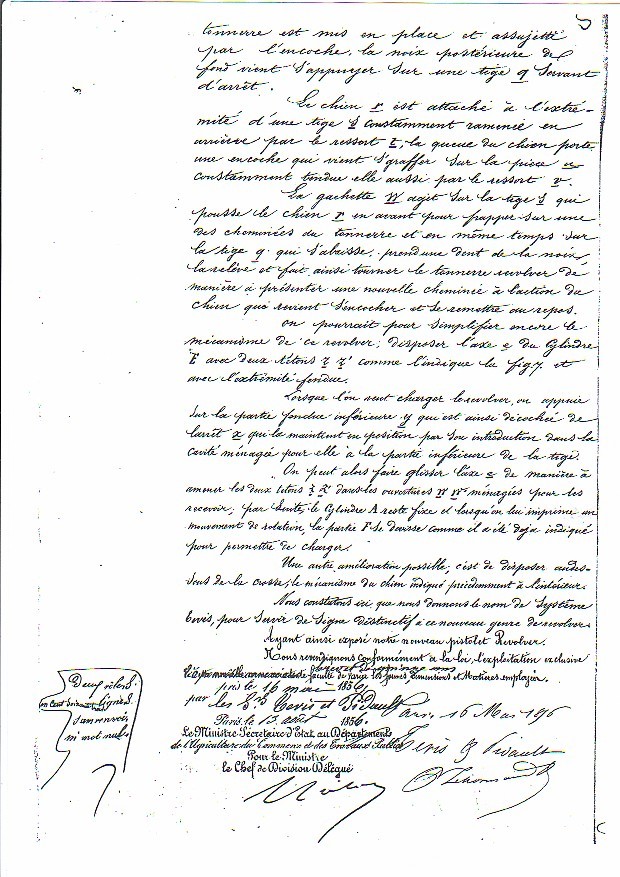 tonnerre est mis en place et assujetti
par l'encoche, la noix postérieure de
fond vient s'appuyer sur une tige q servant
d'arrêt.
Le chien r est attaché à l'extré-
mité d'une tige s constamment ramenée en
arrière par le ressort t; la queue du chien porte
une encoche qui vient s'graffer sur la pièce u
constamment tendue elle aussi par le ressort v.
La gachette W agit sur la tige s qui
pousse le chien r en avant pour frapper sur une
des cheminées du tonnerre et en même temps sur
la tige q qui s'abaisse, prend une dent de la noix,
la relève et fait ainsi tourner le tonnerre revolver de
manière à présenter une nouvelle cheminée à l'action du
chien qui revient s'encocher et se remettre au repos.
On pourrait pour simplifier encore le
mécanisme de ce revolver, disposer l'axe e du Cylindre
E avec deux tétons z z' comme l'indique la fig 7 et
avec l'extrémité fendue.
Lorsque l'on veut charger le revolver, on appuie
sur la partie fendue inférieure y qui est ainsi décochée de
l'arrêt x qui la maintient en position par son introduction dans la
cavité ménagée pour elle à la partie inférieure de la tige.
On peut alors faire glisser l'axe e de manière à
amener les deux tétons z z' dans les ouvertures ménagées pour les
recevoir; par suite, le Cylindre A reste fixe et lorsqu'on lui imprime un
mouvement de rotation, la partie F se devisse comme il a été déjà indiqué
pour permettre de charger.
Une autre amélioration possible, c'est de disposer au des-
sous de la crosse, le mécanisme du chien indiqué précédemment à l'intérieur.
Nous constatons ici que nous donnons le nom de Système
Cevis, pour servir de Signe Distinctif à ce nouveau genre de revolver.
Ayant ainsi exposé notre nouveau pistolet Revolver.
Nous revendiquons conformément à la loi, l'exploitation exclusive
faculté de varier les formes, dimensions et Matières employées.
pris le 16 mai 1856
par les Srs Cevis et Pidault
Paris, 16 Mai 1856
Paris le 13 août 1856.
Le Ministre Secrétaire d'Etat au Département
de l'Agriculture du Commerce et des Travaux Publics
Pour le Ministre
Le Chef de Division Délégué
Pidault
Deux rôles
lignes
sans renvoi
ni mot nul